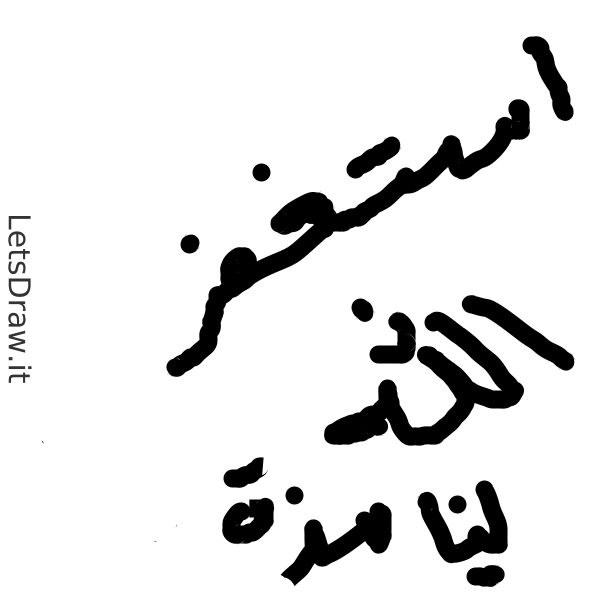 استغفر
الله
لينا مزة
LetsDraw.it